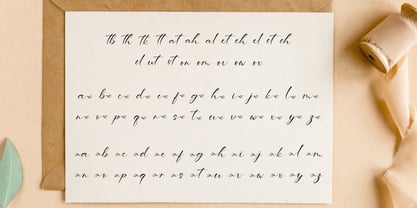 tb th tk tl at ah al et eh el et ch
el ut st on om ov ow ox
a e b e c e d e e e f e g e h e i e j e k e l e m e
n e o e p e q e r e s e t e u e v e w e x e y e z e
aa ab ac ad ae af ag ah ai aj ak al am
an ao ap aq ar as at au av aw ax ay az